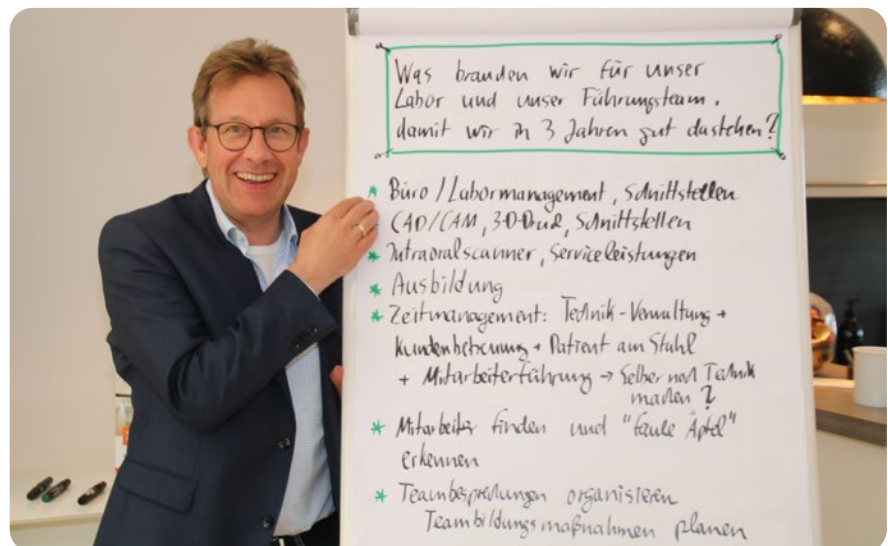 Was brauchen wir für unser
Labor und unser Führungsteam,
damit wir in 3 Jahren gut dastehen?
* Büro / Labormanagement, Schnittstellen
CAD/CAM, 3-D-Druck, Schnittstellen
* Intraoralscanner, Serviceleistungen
* Ausbildung
* Zeitmanagement: Technik-Verwaltung +
Kundenbetreuung + Patient am Stuhl
+ Mitarbeiterführung → Selber noch Technik
machen?
* Mitarbeiter finden und "faule Äpfel"
erkennen
* Teambesprechungen organisieren
Teambildungsmaßnahmen planen